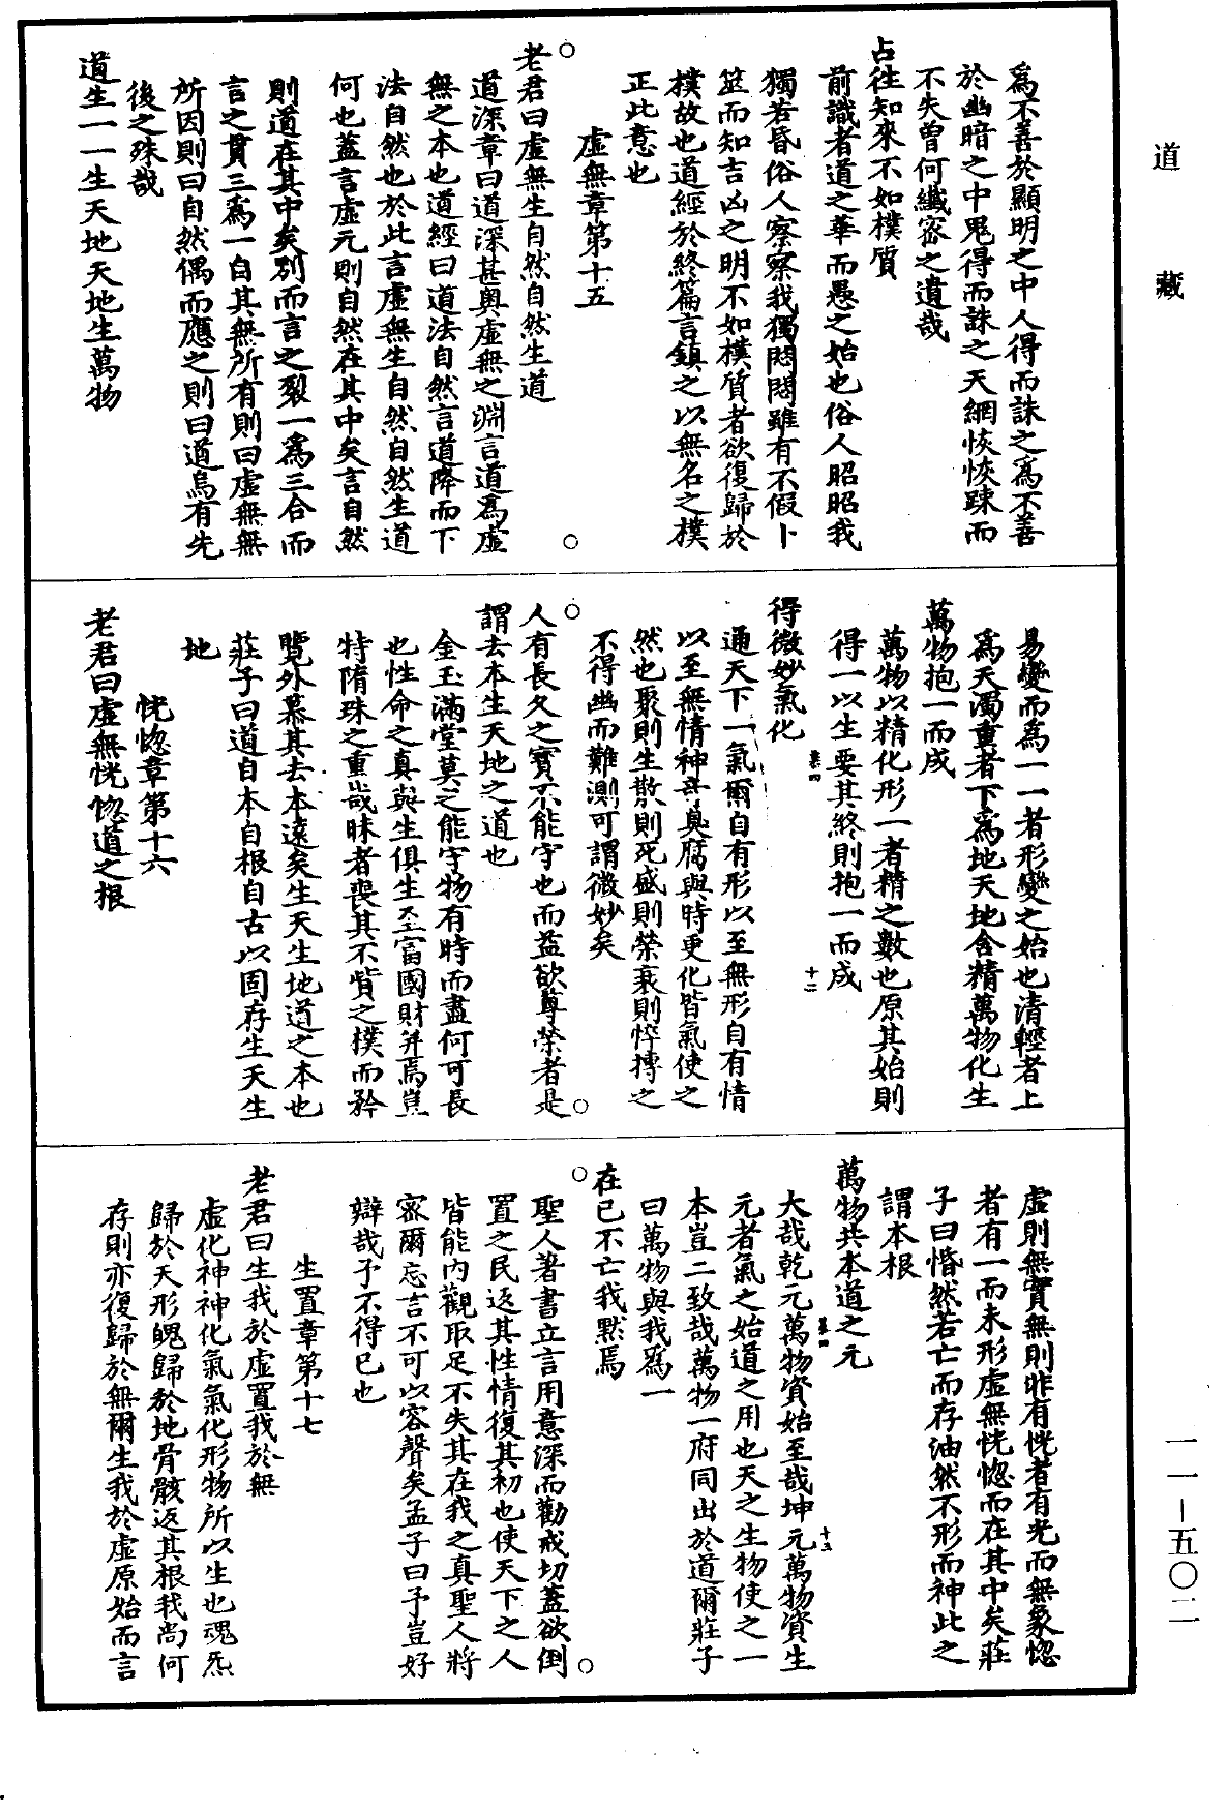 道藏
爲不善於顯明之中人得而誅之爲不善
於幽暗之中鬼得而誅之天網恢恢踈而
不失曾何纖宻之遺哉
占徃知來不如樸質
前識者道之華而愚之始也俗人昭昭我
獨若昏俗人察察我獨悶悶雖有不假卜
筮而知吉凶之明不如樸質者欲復歸於
樸故也道經於終篇言鎮之以無名之樸
正此意也
虛無章第十五
老君曰虛無生自然自然生道
道深章曰道深甚奥虛無之淵言道爲虛
無之本也道經曰道法自然言道降而下
法自然也於此言虛無生自然自然生道
何也蓋言虛元則自然在其中矣言自然
則道在其中矣别而言之裂一爲三合而
言之貫三爲一自其無所有則曰虛無無
所因則曰自然偶而應之則曰道烏有先
後之殊哉
道生一一生天地天地生萬物
易變而為一一者形變之始也清輕者上
爲天濁重者下爲地天地含精萬物化生
萬物抱一而成
萬物以精化形一者精之數也原其始則
得一以生要其終則抱一而成
得微妙氣化
通天下一氣爾自有形以至無形自有情
以至無情神奇臭腐與時更化皆氣使之
然也聚則生散則死盛則榮衰則悴摶之
不得幽而難測可謂微妙矣
人有長久之寳不能守也而益欲尊榮者是
謂去本生天地之道也
金玉滿堂莫之能守物有時而盡何可長
也性命之真與生俱生至富國財并焉豈
特隋珠之重哉昧者喪其不貲之樸而矜
覽外慕其去本遠矣生天生地道之本也
莊子曰道自本自根自古以固存生天生
地
恍惚章第十六
老君曰虛無恍惚道之根
虛則無實無則非有恍者有光而無象惚
者有一而未形虛無恍惚而在其中矣莊
子曰惛然若亡而存油然不形而神此之
謂本根
萬物共本道之元
大哉乾元萬物資始至哉坤元萬物資生
元者氣之始道之用也天之生物使之一
本豈二致哉萬物一府同出於道爾莊子
曰萬物與我爲一
在已不亡我默焉
聖人著書立言用意深而勸戒切蓋欲倒
置之民返其性情復其初也使天下之人
皆能内觀取足不失其在我之真聖人將
宻爾忘言不可以容聲矣孟子曰予豈好
辯哉予不得已也
生置章第十七
老君曰生我於虛置我於無
虛化神神化氣氣化形物所以生也魂炁
歸於天形魄歸於地骨骸返其根我尚何
存則亦復歸於無爾生我於虛原始而言
一一—五〇二